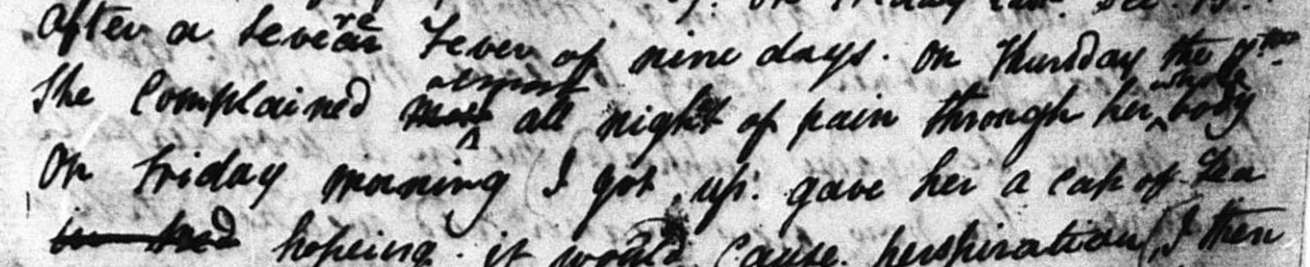 on Friday last Dec. 15th
after a severe Fever of nine days. On Thursday the 7th
She Complained most almost all night of pain through her whole body
On Friday morning I got up. gave her a cup of Tea
in bed hopeing it would Cause perspiration (I then